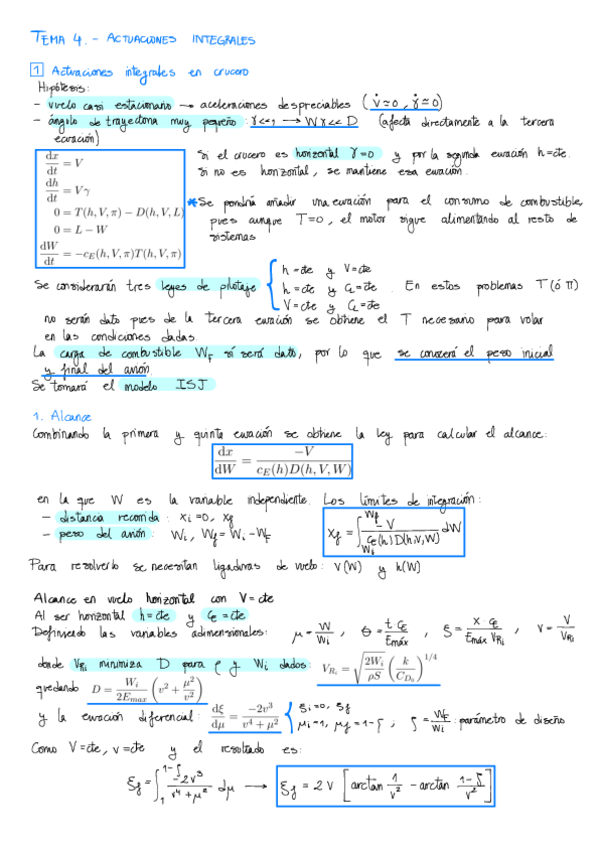 TEMA 4.- ACTUACIONES INTEGRALES
1 Actuaciones integrales en crucero
Hipótesis:
- vuelo casi estacionario → aceleraciones despreciables ( V̇≃0 , γ̇≃0 )
- ángulo de trayectoria muy pequeño : γ<<1 → Wγ<<D (afecta directamente a la tercera
ecuación)
dx/dt = V
dh/dt = Vγ
0 = T(h, V, π) − D(h, V, L)
0 = L − W
dW/dt = −c_E(h, V, π)T(h, V, π)
Si el crucero es horizontal γ=0 y por la segunda ecuación h=cte.
Si no es horizontal, se mantiene esa ecuación.
* Se pondría añadir una ecuación para el consumo de combustible,
pues aunque T=0, el motor sigue alimentando al resto de
sistemas
Se considerarán tres leyes de pilotaje { h=cte y V=cte
h=cte y C_L=cte
V=cte y C_L=cte
. En estos problemas T (ó π)
no serán dato pues de la tercera ecuación se obtiene el T necesario para volar
en las condiciones dadas.
La carga de combustible W_F sí será dato, por lo que se conocerá el peso inicial
y final del avión.
Se tomará el modelo ISJ
1. Alcance
Combinando la primera y quinta ecuación se obtiene la ley para calcular el alcance:
dx/dW = −V / c_E(h)D(h, V, W)
en la que W es la variable independiente. Los límites de integración:
- distancia recorrida : x_i=0, x_f
- peso del avión : W_i, W_f = W_i - W_F
x_f = ∫_{W_i}^{W_f} -V / C_E(h) D(h,V,W) dW
Para resolverlo se necesitan ligaduras de vuelo: V(W) y h(W)
Alcance en vuelo horizontal con V=cte
Al ser horizontal h=cte y C_E=cte
Definiendo las variables adimensionales: μ = W/W_i , θ = t C_E/E_máx , ξ = x C_E/E_máx V_Ri , v = V/V_Ri
donde V_Ri minimiza D para ρ y W_i dados: V_Ri = √(2W_i/ρS) (k/C_D0)^1/4
quedando D = W_i/2E_max (v² + μ²/v²)
y la ecuación diferencial: dξ/dμ = −2v³/v⁴ + μ² { ξ_i=0, ξ_f
μ_i=1, μ_f=1-ζ ; ζ = W_F/W_i : parámetro de diseño
Como V=cte, v=cte y el resultado es:
ξ_f = ∫_1^{1-ζ} -2v³/v⁴+μ² dμ → ξ_f = 2v [ arctan 1/v² - arctan 1-ζ/v² ]